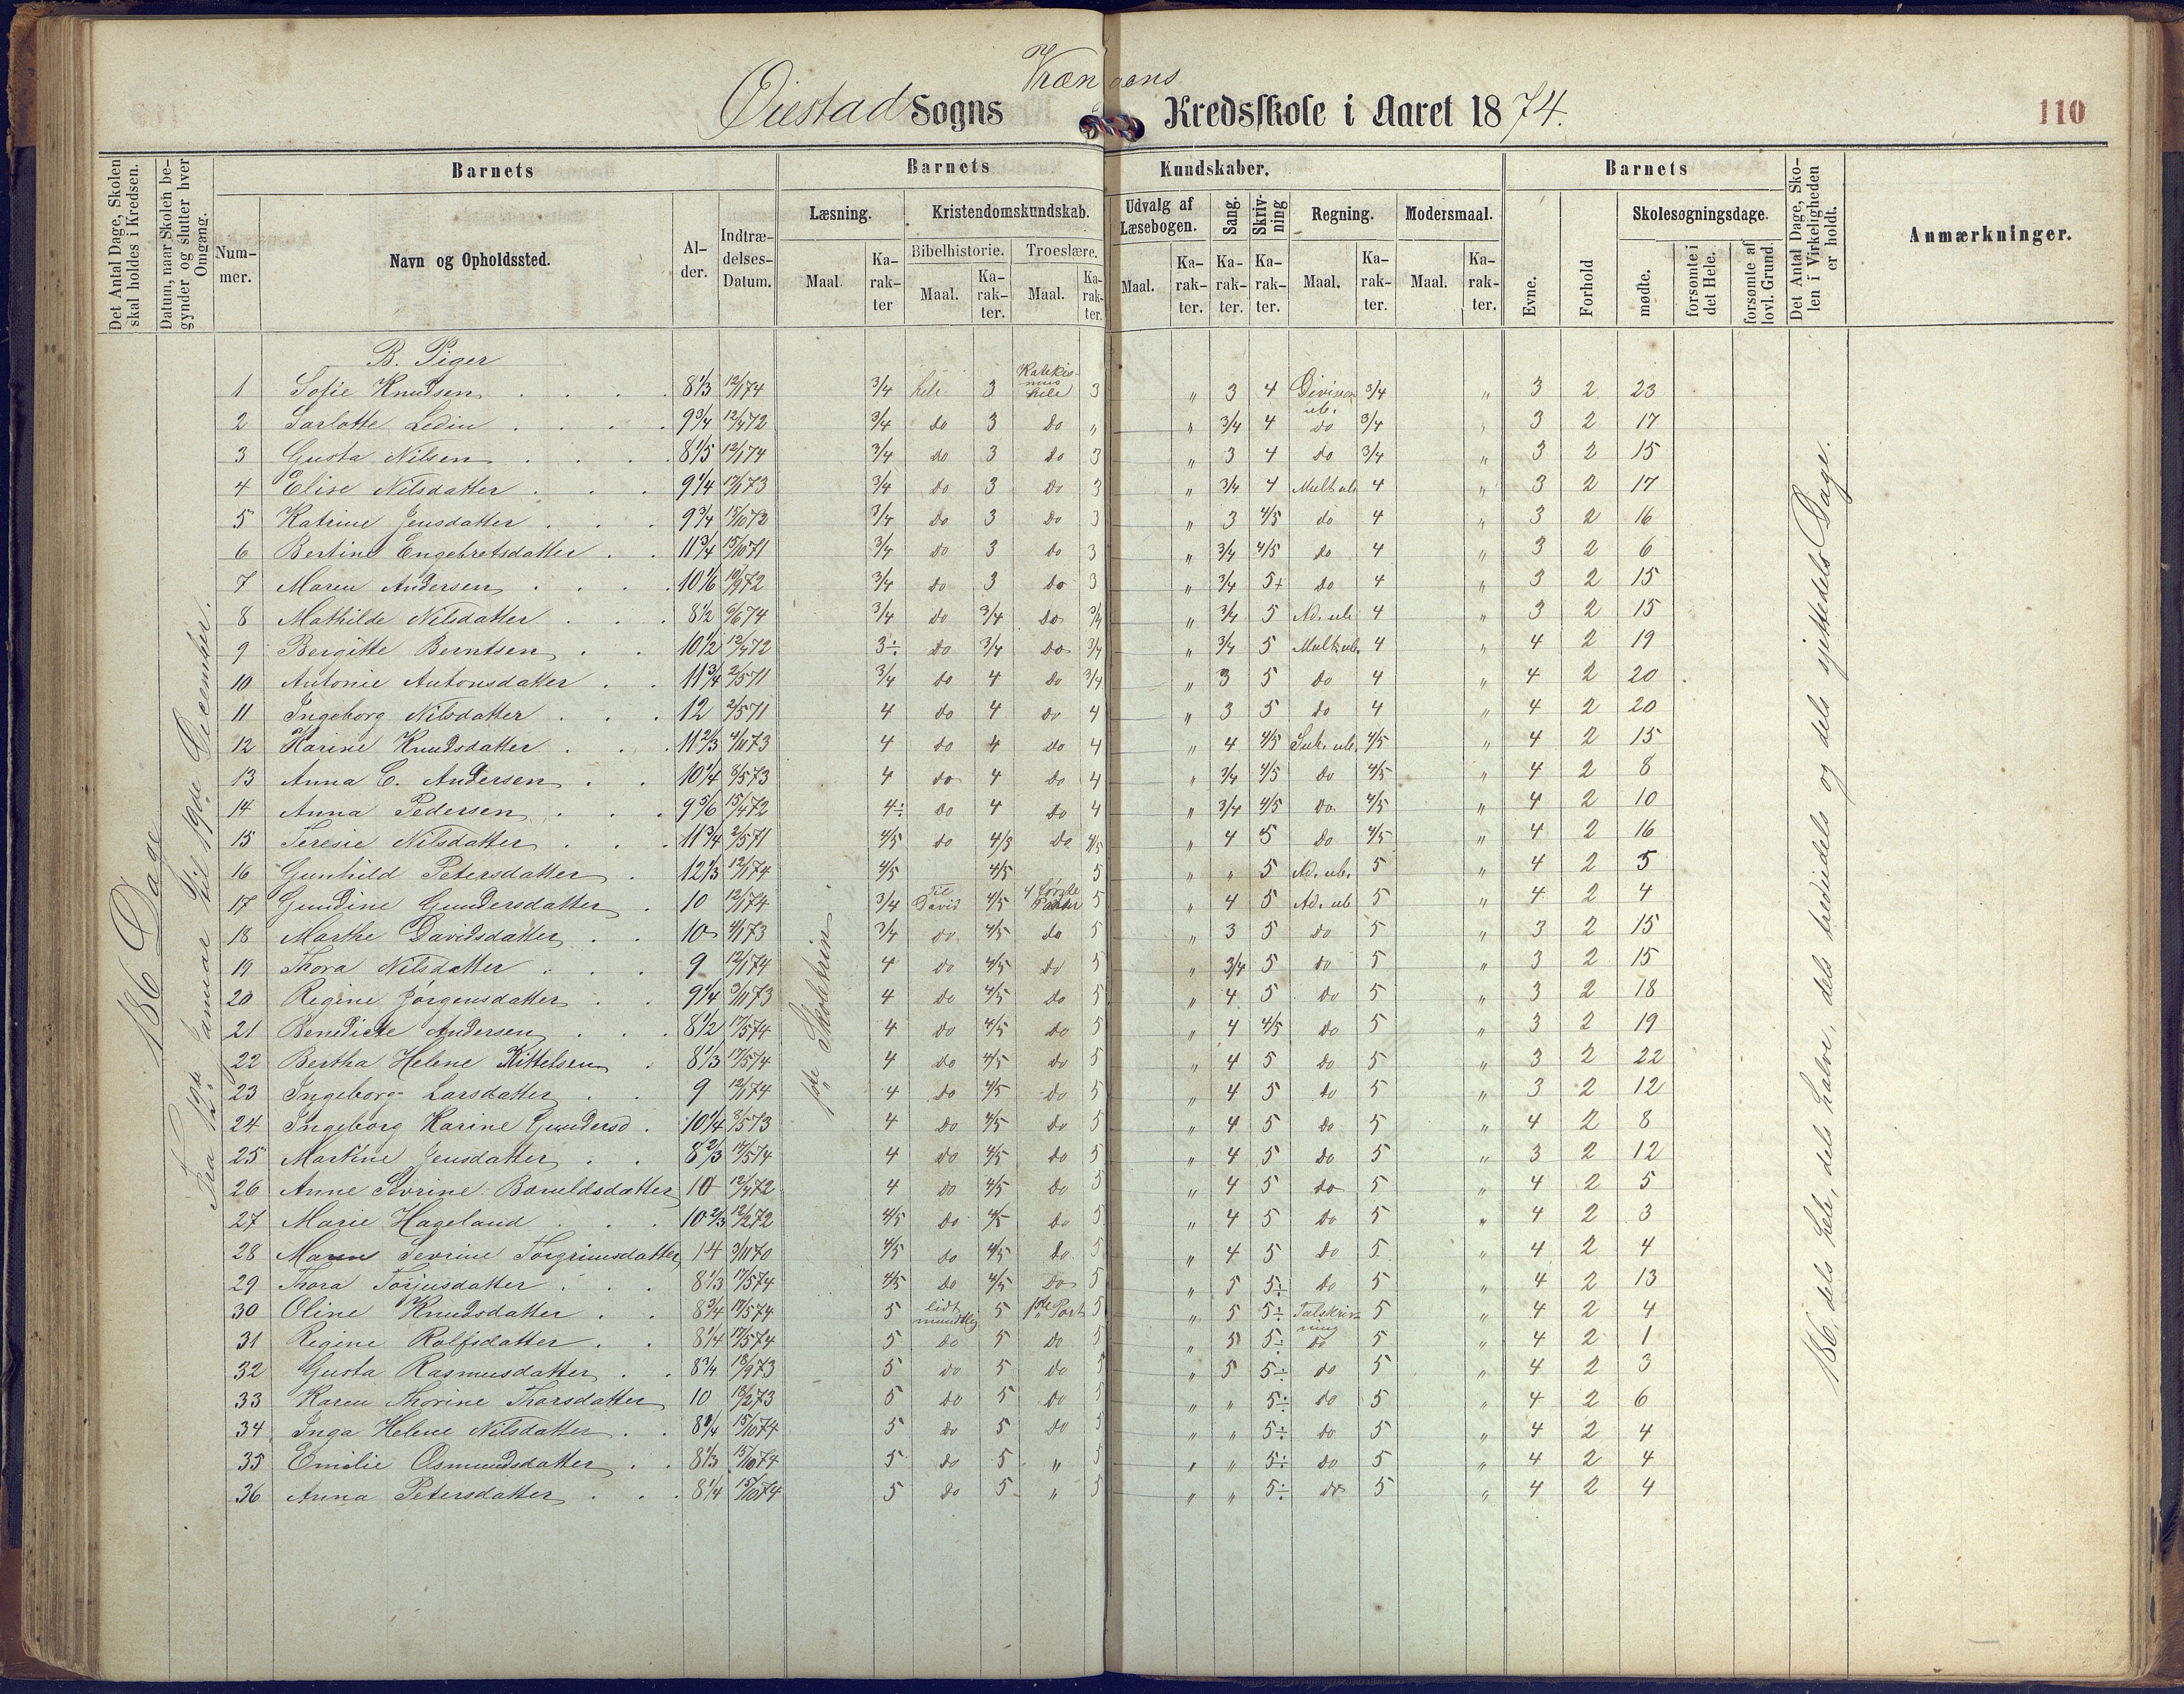 Øiestad Sogns Vrængens Kredsskole i Aaret 1874.
110
Det Antal Dage, Skolen skal holdes i Kredsen.
Datum, naar Skolen begynder og slutter hver Omgang.
Barnets
Nummer.
Navn og Opholdssted.
Alder.
Indtrædelses-Datum.
Barnets Kundskaber.
Læsning.
Maal.
Karakter
Kristendomskundskab.
Bibelhistorie.
Maal.
Karakter.
Troeslære.
Maal.
Karakter.
Udvalg af Læsebogen.
Maal.
Karakter.
Sang.
Karakter.
Skrivning
Karakter.
Regning.
Maal.
Karakter.
Modersmaal.
Maal.
Karakter.
Barnets
Evne.
Forhold
Skolesøgningsdage.
mødte.
forsømte i det Hele.
forsømte af lovl. Grund.
Det Antal Dage, Skolen i Virkeligheden er holdt.
Anmærkninger.
186 Dage
Fra 12te Januar til 19de December.
1ste Skoletrin.
186, dels hele, dels halve, dels trediedels og dels sjettedels Dage.
B. Piger
1 Sofie Knudsen 8 1/3 12/1 74 3/4 hele 3 Katekismus hele 3 " 3 4 Division ub. 3/4 " 3 2 23
2 Sarlotte Ledin 9 3/4 12/4 72 3/4 do 3 do " " 3/4 4 do 3/4 " 3 2 17
3 Gusta Nilsen 8 1/5 12/1 74 3/4 do 3 do 3 " 3 4 do 3/4 " 3 2 15
4 Elise Nilsdatter 9 1/4 17/1 73 3/4 do 3 do 3 " 3/4 4 Mult ub 4 " 3 2 17
5 Katrine Jensdatter 9 3/4 15/10 72 3/4 do 3 do 3 " 3 4/5 do 4 " 3 2 16
6 Bertine Engebretsdatter 11 3/4 15/10 71 3/4 do 3 do 3 " 3/4 4/5 do 4 " 3 2 6
7 Maren Andersen 10 1/6 10/9 72 3/4 do 3 do 3 " 3/4 5+ do 4 " 3 2 15
8 Mathilde Nilsdatter 8 1/2 6/6 74 3/4 do 3/4 do 3/4 " 3/4 5 Ad. ub 4 " 3 2 15
9 Bergitte Berntsen 10 1/2 12/4 72 3÷ do 3/4 do 3/4 " 3/4 5 Mult ub. 4 " 4 2 19
10 Antonie Antonsdatter 11 3/4 2/5 71 3/4 do 4 do 3/4 " 3 5 do 4 " 4 2 20
11 Ingeborg Nilsdatter 12 2/5 71 4 do 4 do 4 " 3 5 do 4 " 4 2 20
12 Karine Knudsdatter 11 2/3 4/11 73 4 do 4 do 4 " 4 4/5 Sub. ub. 4/5 " 4 2 15
13 Anna C. Andersen 10 1/4 8/5 73 4 do 4 do 4 " 3/4 4/5 do 4/5 " 4 2 8
14 Anna Pedersen 9 5/6 15/4 72 4÷ do 4 do 4 " 3/4 4/5 do 4/5 " 4 2 10
15 Teresie Nilsdatter 11 3/4 2/5 71 4/5 do 4/5 do 4/5 " 4 5 do 4/5 " 4 2 16
16 Gunhild Petersdatter 12 1/3 12/1 74 4/5 4/5 5 " " 5 Ad. ub. 5 " 4 2 5
17 Gundine Gundersdatter 10 12/1 74 3/4 Til David 4/5 4 første Parter 5 " 4 5 Ad. ub 5 " 4 2 4
18 Marthe Davidsdatter 10 4/1 73 3/4 do 4/5 do 5 " 3 5 do 5 " 3 2 15
19 Thora Nilsdatter 9 12/1 74 4 do 4/5 do 5 " 3/4 5 do 5 " 3 2 15
20 Regine Jørgensdatter 9 1/4 3/11 73 4 do 4/5 do 5 " 4 5 do 5 " 3 2 18
21 Benedicte Andersen 8 1/2 17/5 74 4 do 4/5 do 5 " 4 4/5 do 5 " 3 2 19
22 Bertha Helene Kittelsen 8 1/3 17/5 74 4 do 4/5 do 5 " 4 5 do 5 " 3 2 22
23 Ingeborg Larsdatter 9 12/1 74 4 do 4/5 do 5 " 4 5 do 5 " 3 2 12
24 Ingeborg Karine Gundersd. 10 1/4 8/5 73 4 do 4/5 do 5 " 4 5 do 5 " 4 2 8
25 Martine Jensdatter 8 2/3 17/5 74 4 do 4/5 do 5 " 4 5 do 5 " 3 2 12
26 Anne Sevrine 10 12/4 72 4 do 4/5 do 5 " 4 5 do 5 " 4 2 5
27 Marie Hageland 10 2/3 12/2 72 4/5 do 4/5 do 5 " 4 5 do 5 " 4 2 3
28 Maren Sevrine Torgrimsdatter 14 3/11 70 4/5 do 4/5 do 5 " 4 5 do 5 " 4 2 4
29 Thora Torjusdatter 8 1/3 17/5 74 4/5 do 4/5 do 5 " 5 5÷ do 5 " 4 2 13
30 Oline Knudsdatter 8 3/4 17/5 74 5 lidt mundtlig 5 1ste Part 5 " 5 5÷ Talskrivning 5 " 4 2 4
31 Regine Rolfsdatter 8 1/4 17/5 74 5 do 5 do 5 " 5 5÷ do 5 " 4 2 1
32 Gusta Rasmusdatter 8 3/4 18/9 73 5 do 5 do 5 " 5 5÷ do 5 " 4 2 3
33 Karen Thorine Thorsdatter 10 18/2 73 5 do 5 do 5 " " 5÷ do 5 " 4 2 6
34 Inga Helene Nilsdatter 8 1/4 15/10 74 5 do 5 do 5 " " 5÷ do 5 " 4 2 4
35 Emilie Osmundsdatter 8 1/3 15/10 74 5 do 5 " 5 " " 5÷ do 5 " 4 2 4
36 Anna Petersdatter 8 1/4 15/10 74 5 do 5 " 5 " " 5÷ do 5 " 4 2 4